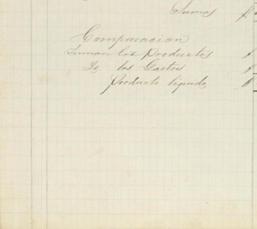 Sumas $
Comparacion
Suman los Productos $
Id los Gastos $
Producto liquido, $